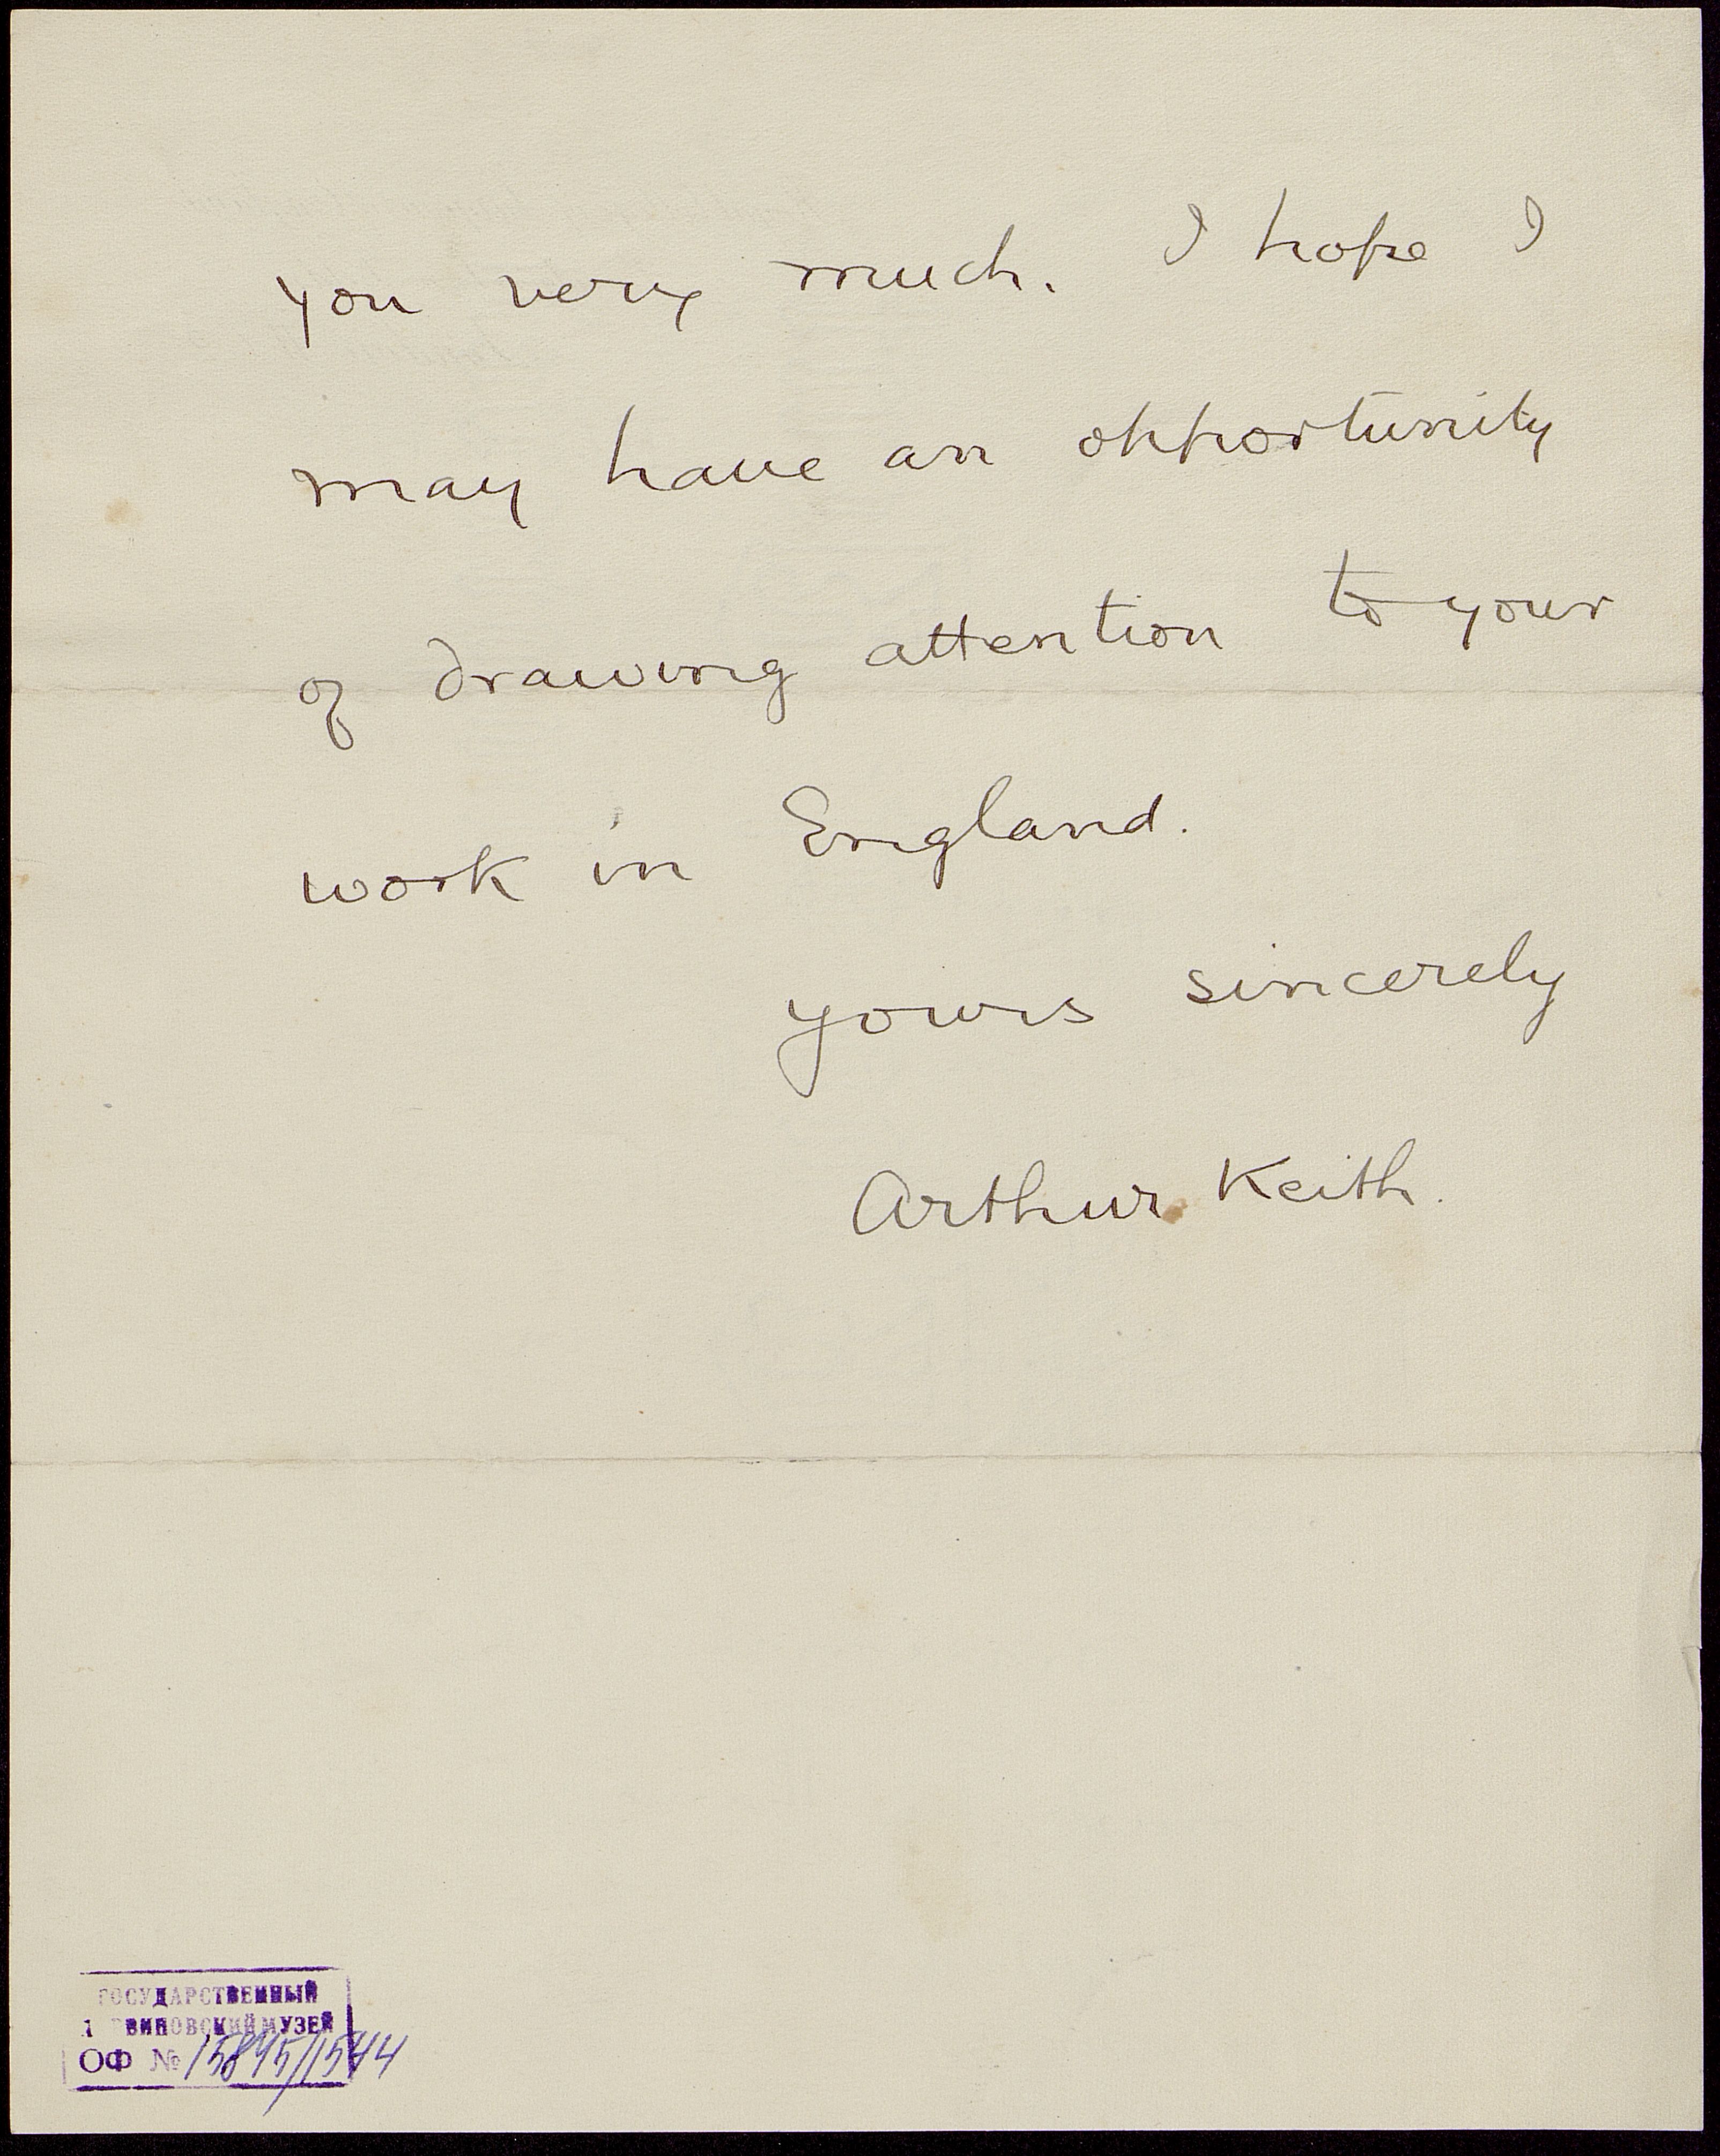 you very much. I hope I
may have an opportunity
of drawing attention to your
work in England.
yours sincerely
Arthur Keith.
ГОСУДАРСТВЕННЫЙ
МУЗЕЙ
ОФ №